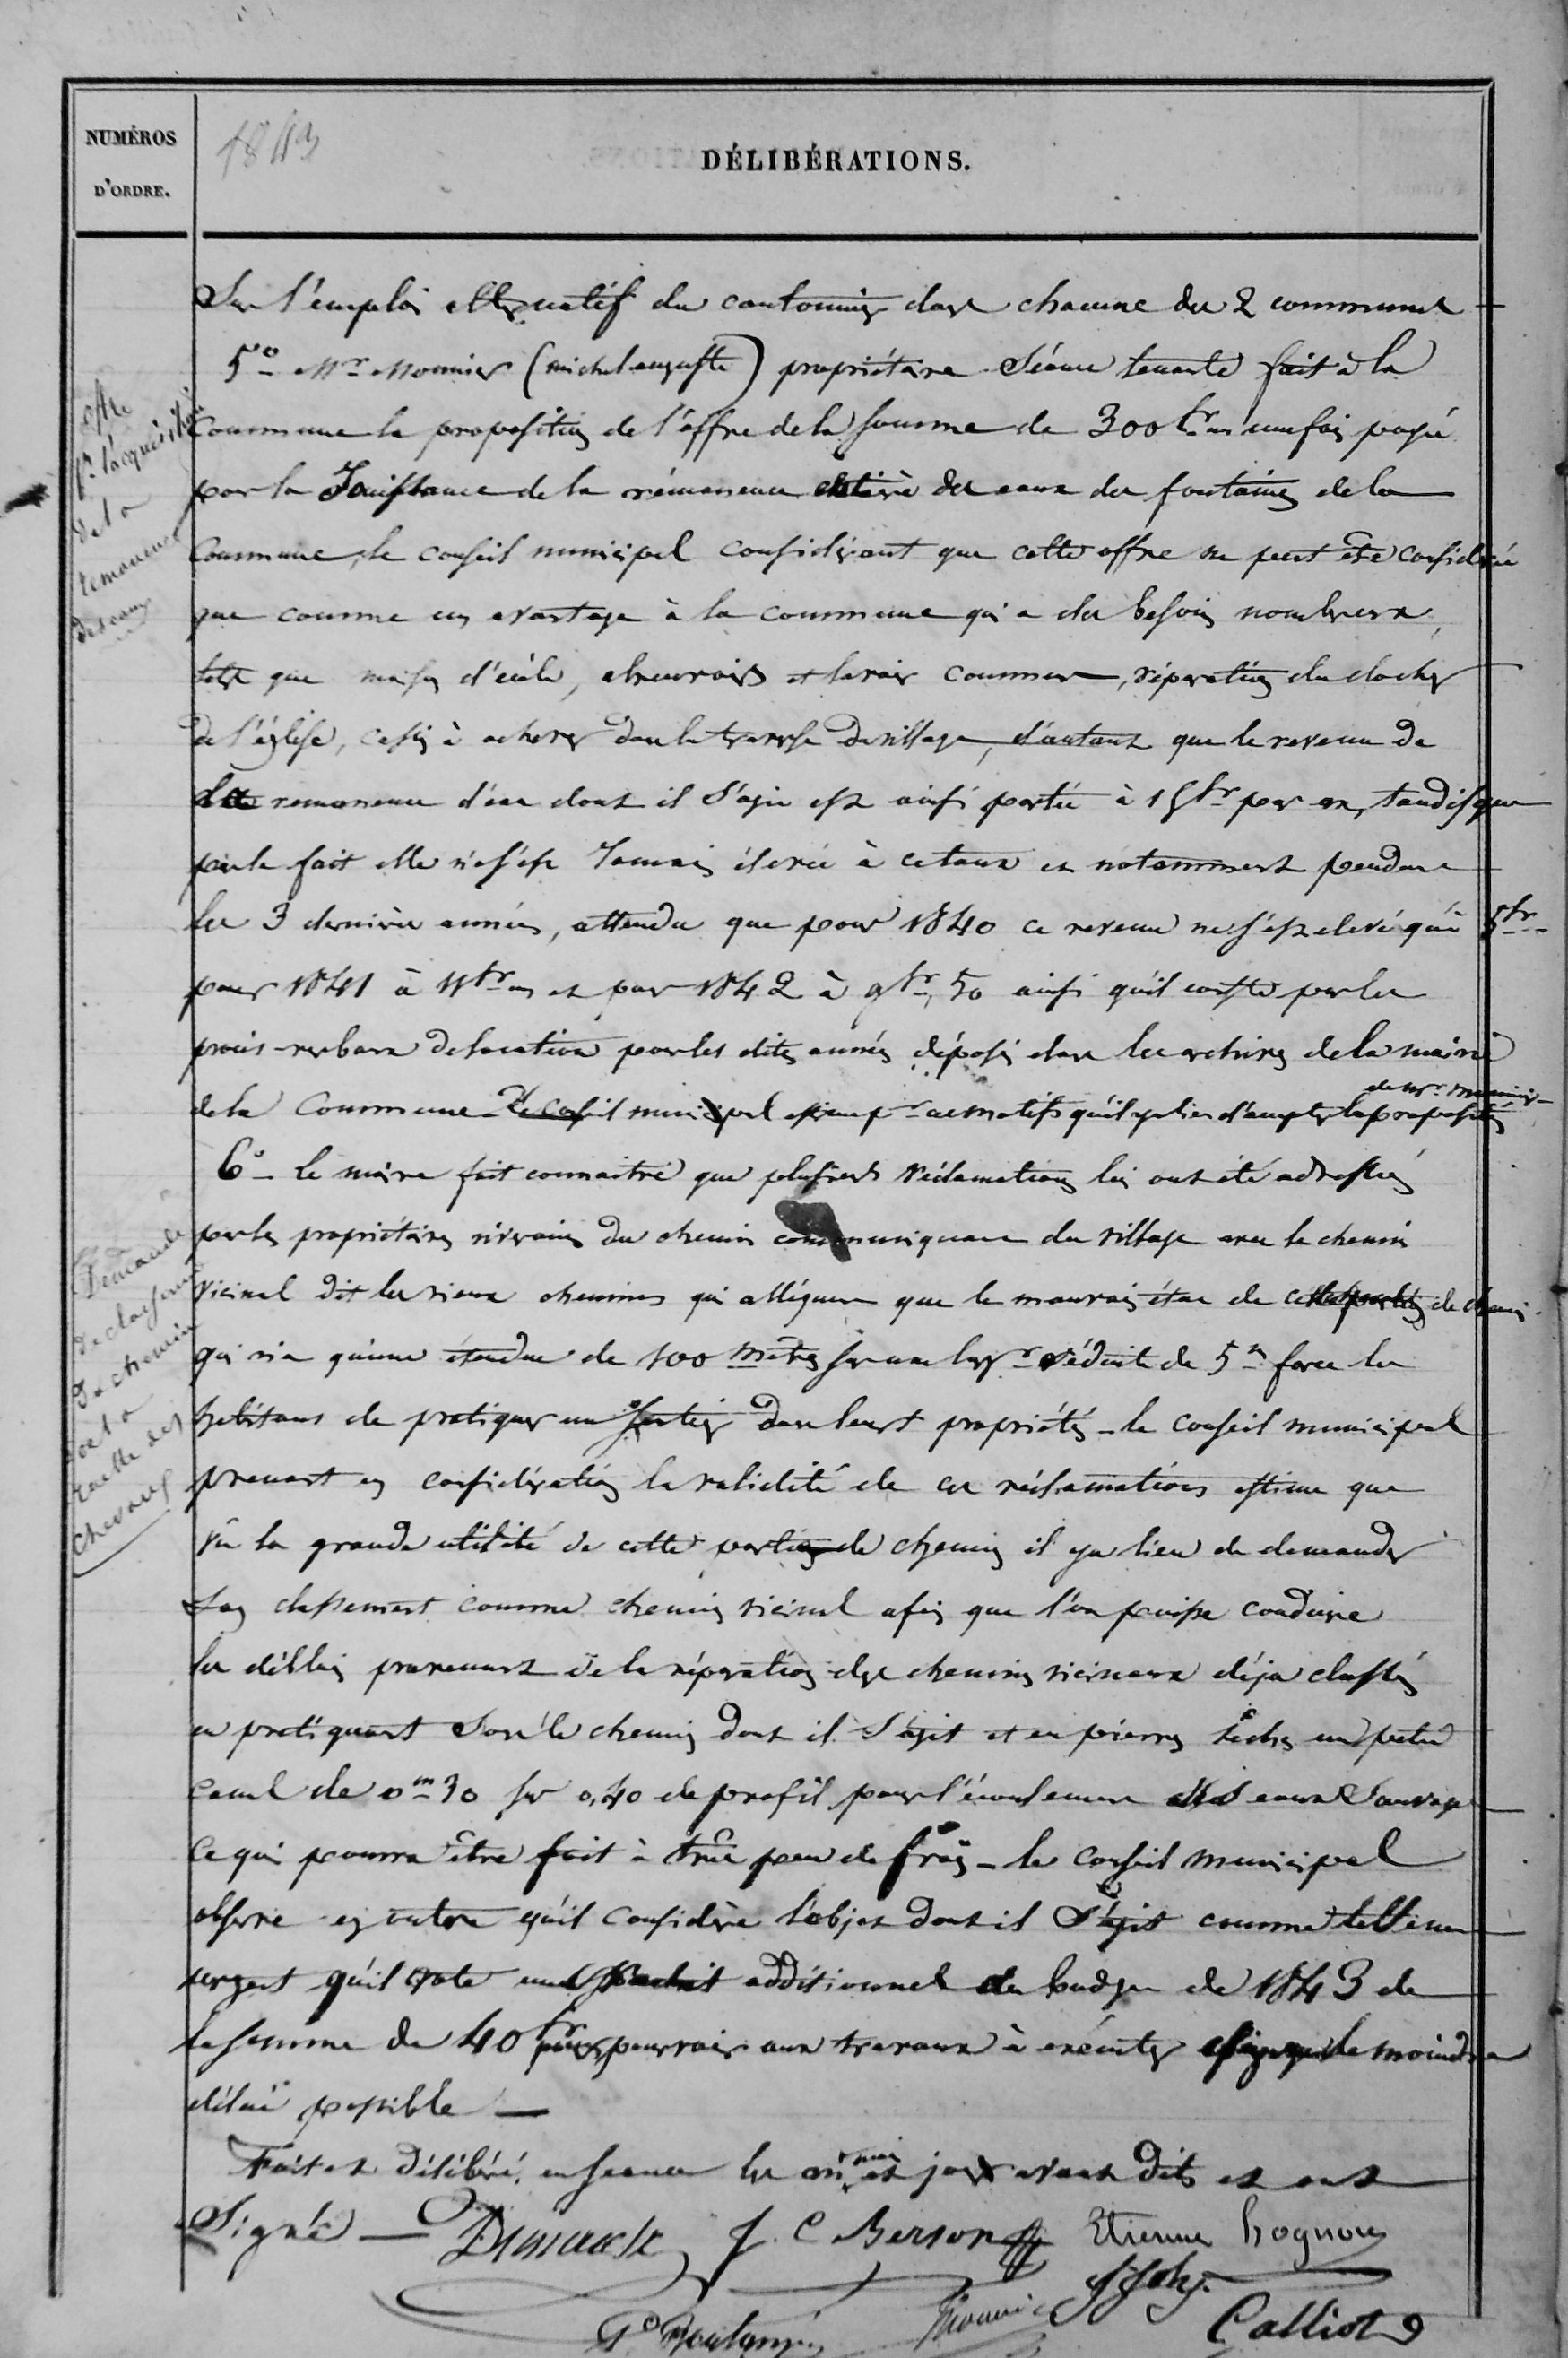 NUMÉROS
D'ORDRE.
1843
DÉLIBÉRATIONS.
Sur l'emploi alternatif du cantonnier dans chacune des 2 communes
5° Mr Mounier (michel auguste) propriétaire Séance tenante fait à la
Commune la proposition de l'offre de la somme de 300 fr une fois payé
pour la Jouissance de la rémanence entière des eaux des fontaines de la
Commune, le conseil municipal considérant que cette offre ne peut être considérée
que comme un avantage à la commune qui a des besoins nombreux,
tels que maison d'école, abreuvoirs et lavoir communs, réparation du clocher
de l'église, cassis à achever dans la traverse du village, d'autant que le revenu de
la remanence d'eau dont il s'agit est ainsi portée à 15 fr par an, tandis que
par le fait elle ne s'est Jamais élevée à ce taux et notamment pendant
les 3 dernières années, attendu que pour 1840 ce revenu ne s'est elevé qu'à 5 fr
pour 1841 à 11 fr et pour 1842 à 9 fr, 50 ainsi qu'il conste par les
procès-verbaux de location pour les dites années déposés dans les archives de la mairie
de la Commune Le Conseil municipal estime pr ces motifs qu'il y a lieu d'accepter la proposition
de Mr Mounier
6° Le maire fait connaitre que plusieurs réclamations lui ont été adressées
par les propriétaires riverains du chemin communiquant du village avec le chemin
vicinal dit les vieux chemins qui allèguent que le mauvais état de cette partie de chemin
qui n'a qu'une étendue de 100 mètres sur une largr réduite de 5m force les
habitans de pratiquer un sentier dans leurs propriétés - le conseil municipal
prenant en considération la validité de ces réclamations estime que
vû la grande utilité de cette partie de chemin il y a lieu de demander
Son classement comme chemin vicinal afin que l'on puisse conduire
les déblais provenant de la réparation des chemins vicinaux déja classés
en pratiquant Sous le chemin dont il S'agit et en pierres sèches un petit
canal de 0m30 sur 0,40 de profil pour l'écoulement des eaux Sauvages
Ce qui pourra être fait à très peu de frais - le Conseil municipal
observe en outre qu'il considère l'objet dont il S'agit comme tellement
urgent qu'il vote un additionnel du budget de 1843 de
la somme de 40 fr pour pourvoir aux travaux à exécuter le moindre
délai possible
Fait et Délibéré en séance les an mois et jour avant dits et ont
Signé J. C Berson Etienne hognon
J Joly
Mounier
Boulangé
Calliot
offre
pr l'acquisition
de la
remanence
des eaux
Demande
de classement
du chemin
de la
ruelle des
chevaux